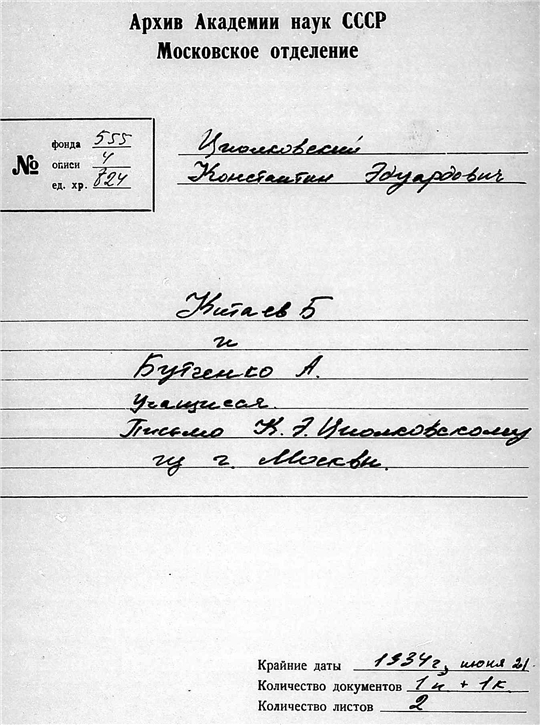 Архив Академии наук СССР
Московское отделение
№
фонда 555
описи 4
ед. хр. 824
Циолковский
Константин Эдуардович
Китаев Б
и
Бутченко А.
Учащиеся.
Письмо К. Э. Циолковскому
из г. Москвы.
Крайние даты 1934 г, июня 21.
Количество документов 1 п + 1 к.
Количество листов 2